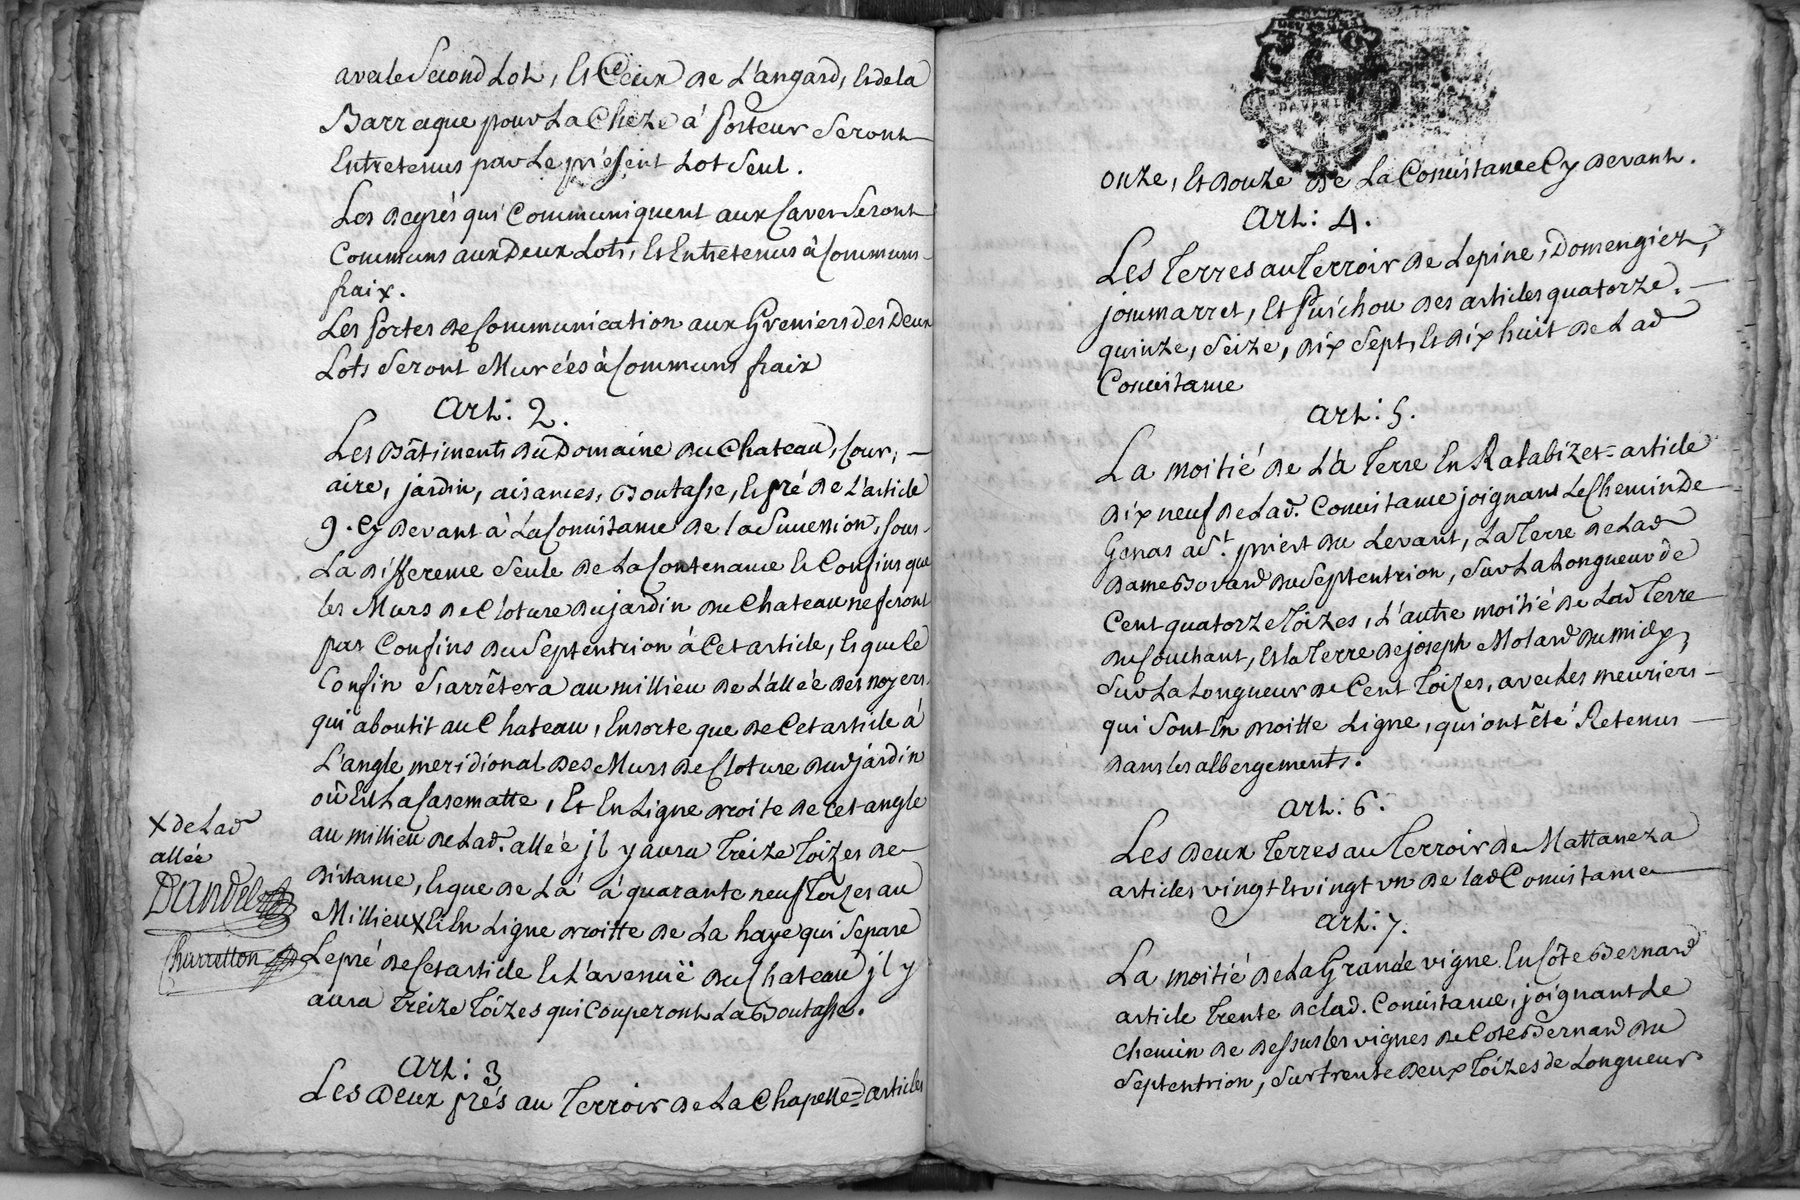 avec le Second Lot, Et Ceux de L'angard, Et de la
Barraque pour La Cheze à porteur Seront
Entretenus par Le présent Lot Seul.
Les degrés qui Communiquent aux Caves Seront
Communs aux Deux Lots, Et Entretenus à Communs
fraix.
Les portes de Communication aux Greniers des Deux
Lots Seront Murées à Communs fraix
Art: 2.
Les Bâtiments du Domaine du Chateau, Cour,
aire, jardin, aisances, Boutasse, Et pré de L'article
9. Cy devant à La Consistance de la Succession, sous
La différence Seule de La Contenance Et Confins que
les Murs de Cloture du jardin du Chateau ne seront
pas Confins du Septentrion à Cet article, Et que le
Confin S'arrêtera au millieu de L'allée des noyers
qui aboutit au Chateau, Ensorte que de Cet article à
L'angle meridional des Murs de Cloture dud jardin
où Est La Casematte, Et En Ligne droite de cet angle
au millieu de Lad. allée jl y aura Treize Toizes de
distance, Et que de Là à quarante neuf Toizes au
Millieu X Et En Ligne droitte de La haye qui Separe
Le pré de Cet article Et L'avenuë du Chateau jl y
aura Treize Toizes qui Couperont La Boutasse.
X de Lad
allée
Dandelo
Charretton
Art: 3
Les Deux prés au Terroir de La Chapelle = articles
DAUPHINE
onze, Et Douze de La Consistance Cy Devant.
Art: 4.
Les Terres au Terroir de Lepine, Domengiez,
jommarret, Et Puichou des articles quatorze.
quinze, Seize, dix Sept, Et dix huit de Lad
Consistance
Art: 5.
La moitié de La Terre En Ratabizet = article
dix neuf de Lad. Consistance joignant Le Chemin de
Genas à St. priest du Levant, La Terre de Lad
dame Bovard du Septentrion, Sur La Longueur de
Cent quatorze Toizes, L'autre moitié de Lad Terre
du Couchant, Et la Terre de joseph Molard du midy,
Sur La Longueur de Cent Toizes, avec Les meuriers
qui Sont En droitte Ligne, qui ont êté Retenus
dans les albergements.
Art: 6.
Les deux Terres au Terroir de Mattaneza
articles vingt Et vingt un de lad Consistance
Art: 7.
La moitié de La Grande vigne En Côte Bernard
article Trente de lad. Consistance, joignant Le
chemin de dessus les vignes de Cote Bernard du
Septentrion, Sur trente deux Toizes de Longueur